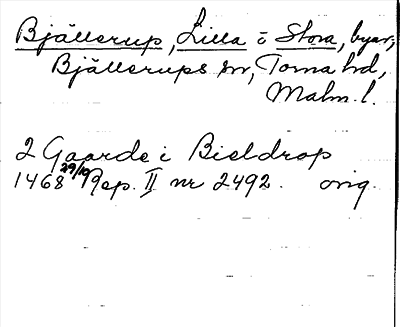 Bjällerup, Lilla o Stora, byar,
Bjällerups sn, Torna hd,
Malm. l.
2 Gaarde i Bieldrop
1468 29/10 Rep. II nr 2492. orig.